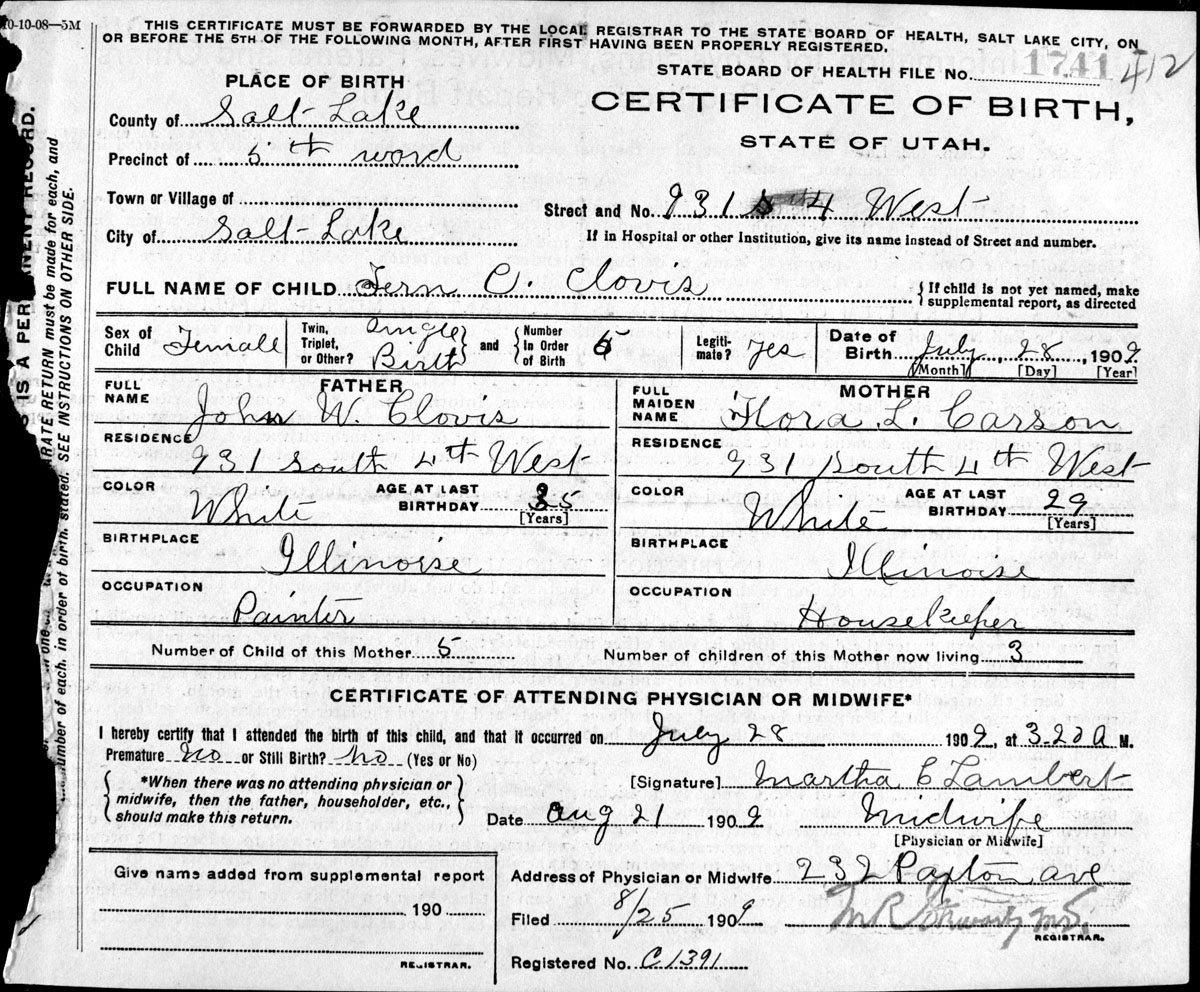 10-10-08—5M
THIS CERTIFICATE MUST BE FORWARDED BY THE LOCAL REGISTRAR TO THE STATE BOARD OF HEALTH, SALT LAKE CITY, ON
OR BEFORE THE 5TH OF THE FOLLOWING MONTH, AFTER FIRST HAVING BEEN PROPERLY REGISTERED.
STATE BOARD OF HEALTH FILE No. 1741 412
PLACE OF BIRTH
CERTIFICATE OF BIRTH,
STATE OF UTAH.
County of Salt Lake
Precinct of 5th word
Town or Village of
Street and No. 931 4 West
City of Salt Lake
If in Hospital or other Institution, give its name instead of Street and number.
FULL NAME OF CHILD Fern C. Clovis
{ If child is not yet named, make
supplemental report, as directed
Sex of Child Female
Twin, Triplet, or Other? Single Birth
and { Number in Order of Birth 5
Legitimate? Yes
Date of Birth July, 28, 1909
[Month] [Day] [Year]
FATHER
FULL NAME John W. Clovis
RESIDENCE 931 South 4th West
COLOR White
AGE AT LAST BIRTHDAY 35
[Years]
BIRTHPLACE Illinoise
OCCUPATION Painter
MOTHER
FULL MAIDEN NAME Flora L. Carson
RESIDENCE 931 South 4th West
COLOR White
AGE AT LAST BIRTHDAY 29
[Years]
BIRTHPLACE Illinoise
OCCUPATION Housekeeper
Number of Child of this Mother 5
Number of children of this Mother now living 3
CERTIFICATE OF ATTENDING PHYSICIAN OR MIDWIFE*
I hereby certify that I attended the birth of this child, and that it occurred on July 28 1909, at 3-20 A M.
Premature No or Still Birth? No (Yes or No)
{ *When there was no attending physician or
midwife, then the father, householder, etc.,
should make this return. }
[Signature] Martha E Lambert
Date Aug 21 1909
Midwife
[Physician or Midwife]
Address of Physician or Midwife 232 Paxton ave
Filed 8/25 1909
M.D.
REGISTRAR.
Registered No. C1391
Give name added from supplemental report
190
REGISTRAR.
IS A PERMANENT RECORD.
ARATE RETURN must be made for each, and
number of each, in order of birth, stated. SEE INSTRUCTIONS ON OTHER SIDE.